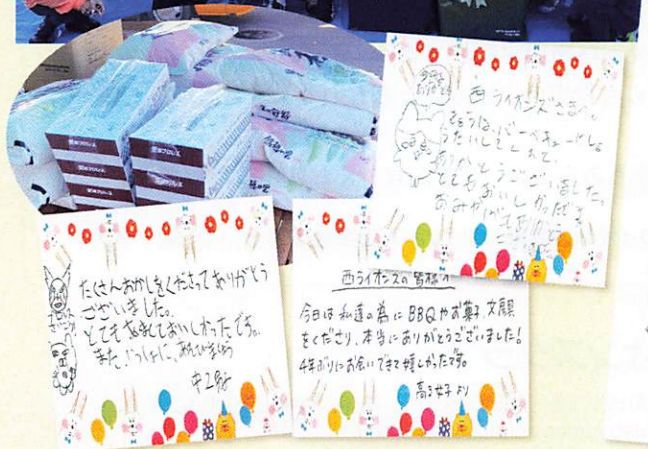 今日は
ありがとう
西ライオンズさまへ。
きょうは、バーベキューにしょ
うたいしてくれて、
ありがとうございました。
とてもおいしかったです。
たくさんおかしをくださってありがとう
ございました。
とてもおいしかったです。
また、いっしょに、あそびましょう
中2男子
西ライオンズの皆様へ
今日は私達の為にBBQやお菓子、文房具
をくださり、本当にありがとうございました!
4年ぶりにお会いできて嬉しかったです。
高3女子より